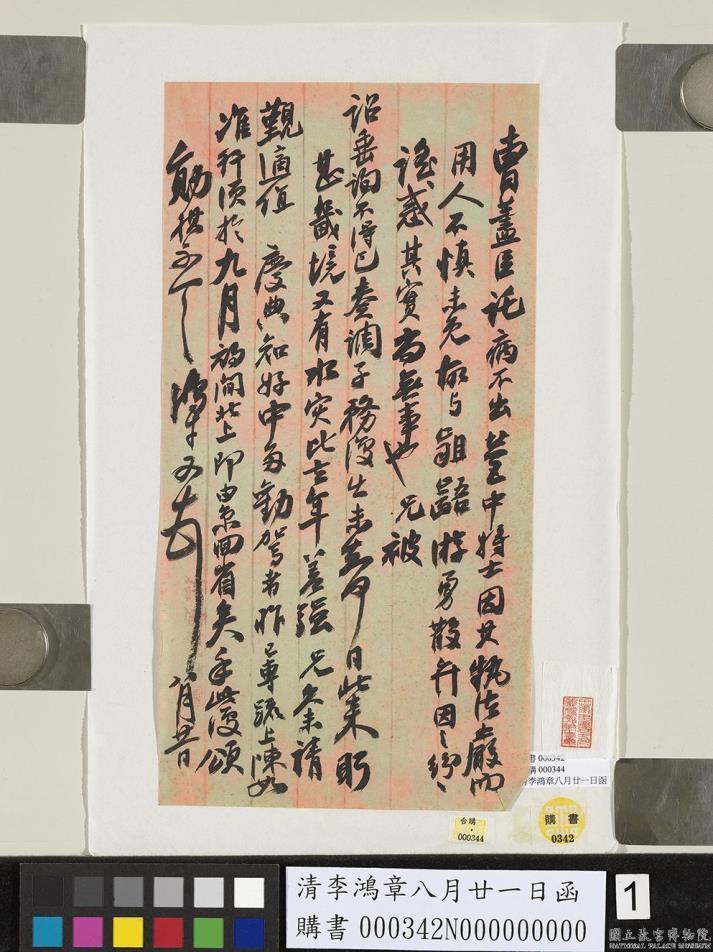 曹藎臣託病不出營中將士因其執法嚴而
用人不慎未免放与齟齬游勇散弁因之
謠惑其實尚無事也兄被
詔垂詢不得已奏調子務復出未知何日此來
甚畿境又有水災比去年差強兄久未請
覲適值 慶典知好中每勸駕者昨已專疏上陳如
准行須於九月初間北上即由京回省矣手此復頌
勛祺不一一 鴻章 八月廿一日
購書 000342
購 000344
清李鴻章八月廿一日函
台購
000344
購書
0342
清李鴻章八月廿一日函
購書 000342N000000000
1
國立故宮博物院
NATIONAL PALACE MUSEUM